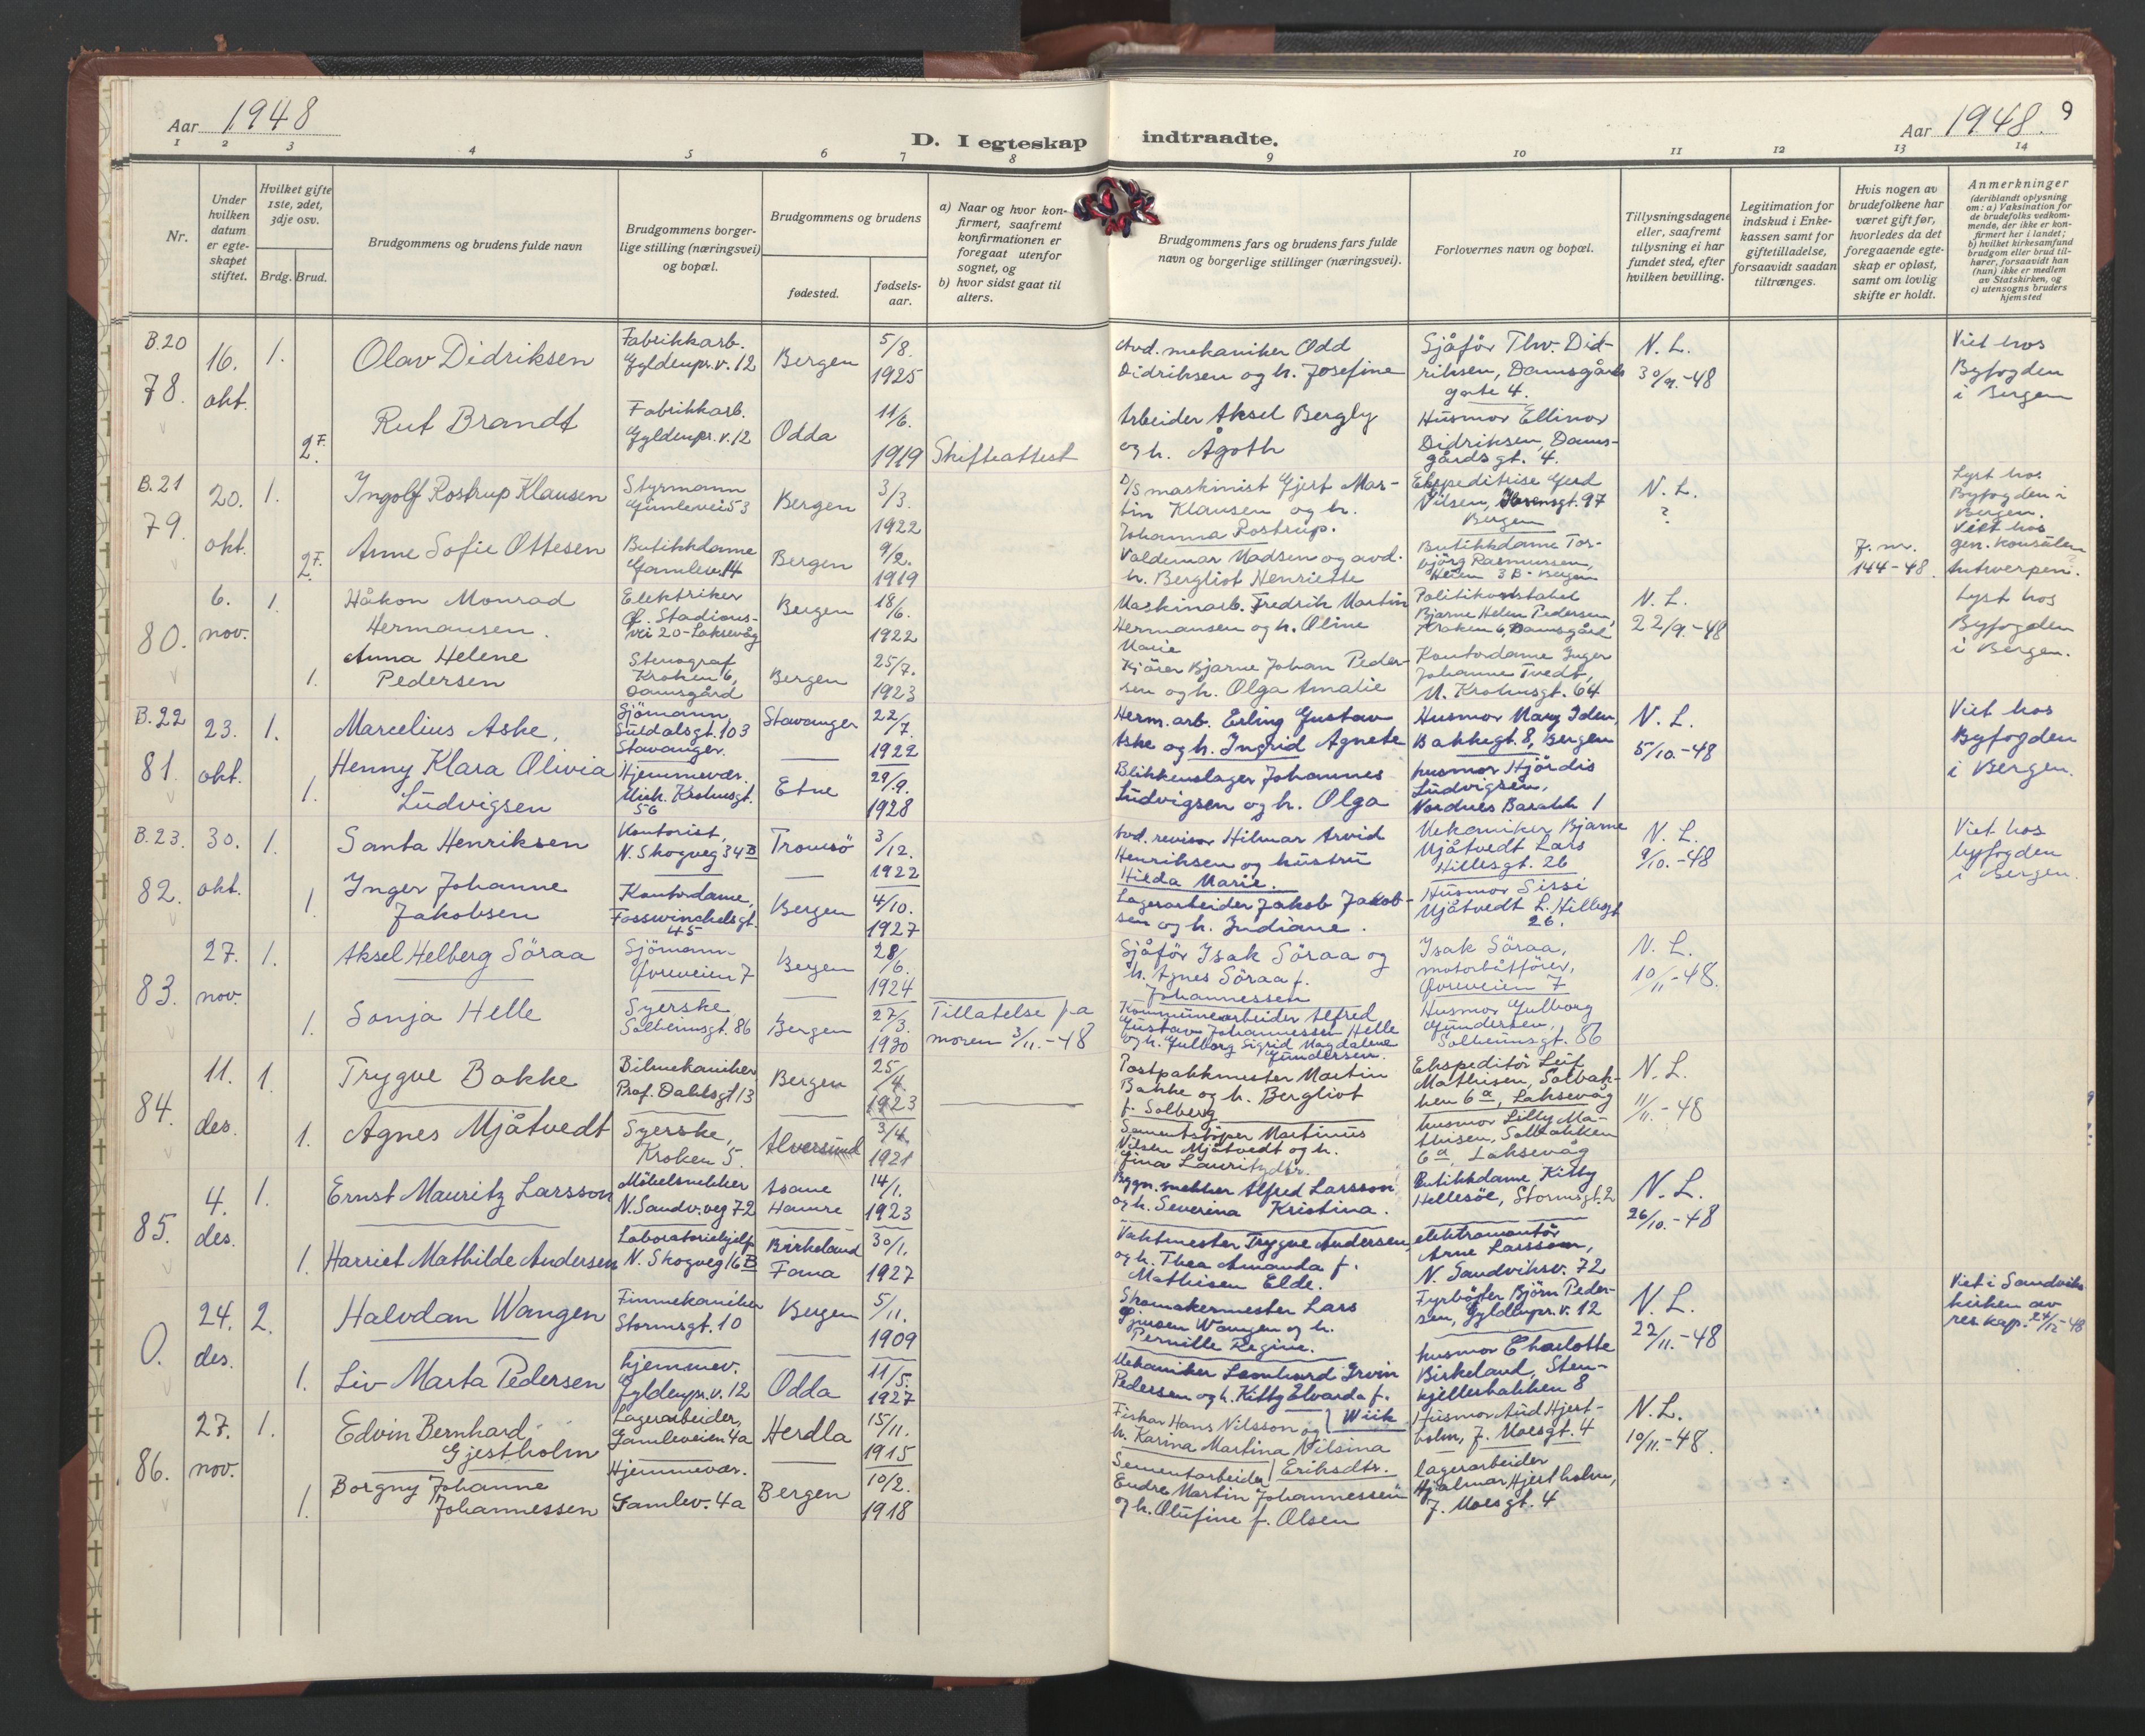 Aar 1948
D. I egteskap indtraadte.
Aar 1948. 9
1 2 3 4 5 6 7 8 9 10 11 12 13 14
Nr.
Under hvilken datum er egteskapet stiftet.
Hvilket gifte 1ste, 2det, 3dje osv.
Brdg. Brud.
Brudgommens og brudens fulde navn
Brudgommens borgerlige stilling (næringsvei) og bopæl.
Brudgommens og brudens
fødested.
fødselsaar.
a) Naar og hvor konfirmert, saafremt konfirmationen er foregaat utenfor sognet, og
b) hvor sidst gaat til alters.
Brudgommens fars og brudens fars fulde navn og borgerlige stillinger (næringsvei).
Forlovernes navn og bopæl.
Tillysningsdagene eller, saafremt tillysning ei har fundet sted, efter hvilken bevilling.
Legitimation for indskud i Enkekassen samt for giftetilladelse, forsaavidt saadan tiltrænges.
Hvis nogen av brudefolkene har været gift før, hvorledes da det foregaaende egteskap er opløst, samt om lovlig skifte er holdt.
Anmerkninger (deriblandt oplysning om: a) Vaksination for de brudefolks vedkommende, der ikke er konfirmert her i landet; b) hvilket kirkesamfund brudgom eller brud tilhører, forsaavidt han (hun) ikke er medlem av Statskirken, og c) utensogns bruders hjemsted
B.20
78.
16. okt. 1. Olav Didriksen
Fabrikkarb. Gyldenpr.v. 12
Bergen
5/8. 1925
Avd. mekaniker Odd
Didriksen og h. Josefine
Sjåfør Thv. Didriksen, Damsgårds
gate 4.
N. L.
30/9.-48
Viet hos
Byfogden
i Bergen
2 F. Rut Brandt
Fabrikkarb. Gyldenpr. v. 12
Odda
11/6. 1919
Skifteattest
Arbeider Aksel Bergly
og h. Ågoth
Husmor Ellinor
Didriksen, Damsgårdsgt. 4.
B.21
79.
20. okt. 1. Ingolf Rostrup Klausen
Styrmann
Gamlevei 53
Bergen
3/3. 1922
D/S maskinist Gjert Martin Klausen og h.
Johanna Rostrup.
Ekspeditrise Gerd
Nilsen, gt. 97
Bergen
N. L.
?
Lyst hos
Byfogden i
Bergen.
Viet hos
gen. konsulen
Antwerpen.
2 F. Anne Sofie Ottesen
Butikkdame
Gamlev. 14
Bergen
9/2. 1919
Valdemar Madsen og avd.
h. Bergliot Henriette
Butikkdame Torbjörg Rasmussen,
3 B. Bergen
J. nr.
144-48.
80.
6. nov. 1. Håkon Monrad
Hermansen.
Elektriker
Stadionsvei 20 - Laksevåg
Bergen
18/6. 1922
Maskinarb. Fredrik Martin
Hermansen og h. Oline
Marie
Politikonstabel
Bjarne Helen Pedersen,
Kroken 6, Damsgård
N. L.
22/9.-48
Lyst hos
Byfogden
i Bergen.
1. Anna Helene
Pedersen
Stenograf
Kroken 6,
Damsgård
Bergen
25/7. 1923
Kjörer Bjarne Johan Pedersen og h. Olga Amalie
Kontordame Inger
Johanne Tvedt,
M. Krohnsgt. 64
B.22
81.
23. okt. 1. Marcelius Aske,
Sjömann
Suldalsgt. 103
Stavanger.
Stavanger
22/7. 1922
Herm. arb. Erling Gustav
Aske og h. Ingrid Agnete
Husmor Mary Iden,
Bakkegt. 8, Bergen
N. L.
5/10.-48
Viet hos
Byfogden
i Bergen.
1. Henny Klara Olivia
Ludvigsen
Hjemmevær.
Mich. Krohnsgt. 56
Etne
29/9. 1928
Blikkenslager Johannes
Ludvigsen og h. Olga
husmor Hjördis
Ludvigsen,
Nordnes Barakk 1
B.23.
82.
30. okt. 1. Santa Henriksen
Kontorist,
N. Skogveg 34 B
Tromsö
3/12. 1922
Avd. revisor Hilmar Arvid
Henriksen og hustru
Hilda Marie.
Mekaniker Bjarne
Mjåtvedt Lars
Hillesgt. 26
N. L.
9/10.-48
Viet hos
byfogden
i Bergen.
1. Inger Johanne
Jakobsen
Kontordame,
Fosswinckelsgt. 45
Bergen
4/10. 1927
Lagerarbeider Jakob Jakobsen og h. Indiane.
Husmor Sissi
Mjåtvedt L. Hillesgt
26.
83.
27. nov. 1. Aksel Helberg Söraa
Sjömann
Øvreveien 7
Bergen
28/6. 1924
Sjåför Isak Söraa og
h. Agnes Söraa f.
Johannessen
Isak Söraa,
motorbåtförer,
Øvreveien 7
N. L.
10/11-48.
1. Sonja Helle
Syerske
Solheimsgt. 86
Bergen
27/3. 1930
Tillatelse fra
moren 3/11.-48
Kommunearbeider Alfred
Gustav Johannessen Helle
og h. Gulborg Sigrid Magdalene
Gundersen.
Husmor Gulborg
Gundersen,
Solheimsgt. 86
84.
11. des. 1. Trygve Bakke
Bilmekaniker
Prof. Dahlsgt 13
Bergen
25/4. 1923
Postpakkmester Martin
Bakke og h. Bergliot
f. Solberg
Ekspeditör Leif
Mathisen, Solbakken 6 a, Laksevåg
N. L.
11/11.-48
1. Agnes Mjåtvedt
Syerske,
Kroken 5.
Alversund
3/4. 1921
Sementstöper Martinus
Nilsen Mjåtvedt og h.
Fina Lauritzdtr.
husmor Lilly Mathisen, Solbakken
6 a, Laksevåg
85.
4. des. 1. Ernst Mauritz Larsson
Möbelsnekker
N. Sandv.veg 72
Åsane
Hamre
14/1. 1923
Bygn. snekker Alfred Larsson
og h. Severina Kristina.
Butikkdame Kitty
Hellesöe, Stormsgt. 2
N. L.
26/10.-48
1. Harriet Mathilde Andersen
Laboratoriehjelp
N. Skogveg 16 B
Birkeland
Fana
30/1. 1927
Vaktmester Trygve Andersen,
og h. Thea Amanda f.
Mathisen Elde.
elektromontör
Arne Larsson,
N. Sandviksv. 72
0.
24. des. 2. Halvdan Wangen
Finmekaniker
Stormsgt. 10
Bergen
5/11. 1909
Skomakermester Lars
Wangen og h.
Pernille Regine.
Fyrböter Björn Pedersen, Gyldenpr. v. 12
N. L.
22/11.-48
Viet i Sandviks
kirken av
res kap. 24/12-48
1. Liv Marta Pedersen
hjemmev.
Gyldenpr. v. 12
Odda
11/5. 1927
Mekaniker Leonhard Irvin
Pedersen og h. Kitty Elvarda f.
Wiik
husmor Charlotte
Birkeland, Stenkjellerbakken 8
86.
27. nov. 1. Edvin Bernhard
Gjestholm
Lagerarbeider,
Gamleveien 4a
Herdla
15/11. 1915
Fisker Hans Nilsson og
h. Karina Martina Nilsina
Eriksdtr.
Husmor Aud Hjertholm, J. Moesgt. 4
N. L.
10/11.-48.
1. Borgny Johanne
Johannessen
Hjemmevær.
Gamlev. 4a
Bergen
10/2. 1918
Sementarbeider
Endre Martin Johannessen
og h. Olufine f. Olsen
lagerarbeider
Hjalmar Hjertholm,
J. Moesgt. 4